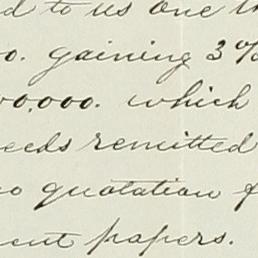 d to us one th
0. gaining 3%
00,000. which
eeds remitted
no quotation f
ent papers.